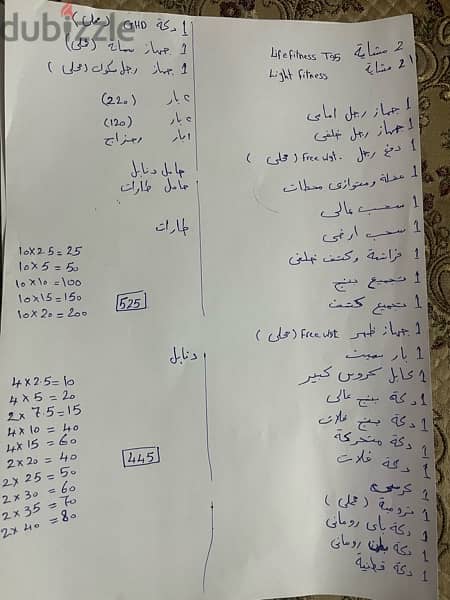 dubizzle
2 مشاية Life fitness T95
2 مشاية Light fitness
1 جهاز رجل امامى
1 جهاز رجل خلفى
1 دفع رجل Free wgt. (محلى)
1 عقلة ومتوازى محطات
1 سحب عالى
1 سحب ارضى
1 فراشة وكتف خلفى
1 تجميع بنج
1 تجميع كتف
1 جهاز ظهر Free wgt (محلى)
1 بار سميث
1 كابل كروس كبير
1 دكة بنج عالى
1 دكة بنج فلات
1 دكة متحركة
1 دكة فلات
1 كرسى
1 (محلى)
1 دكة باى رومانى
1 دكة بطن رومانى
1 دكة قطنية
1 دكة GHD (محلى)
1 جهاز سمانة (محلى)
1 جهاز رجل سكوات (محلى)
2 بار (220)
2 بار (120)
1 بار
حامل دنابل
حامل طارات
طارات
10 x 2.5 = 25
10 x 5 = 50
10 x 10 = 100
10 x 15 = 150
10 x 20 = 200
525
دنابل
4 x 2.5 = 10
4 x 5 = 20
2 x 7.5 = 15
4 x 10 = 40
4 x 15 = 60
2 x 20 = 40
2 x 25 = 50
2 x 30 = 60
2 x 35 = 70
2 x 40 = 80
445